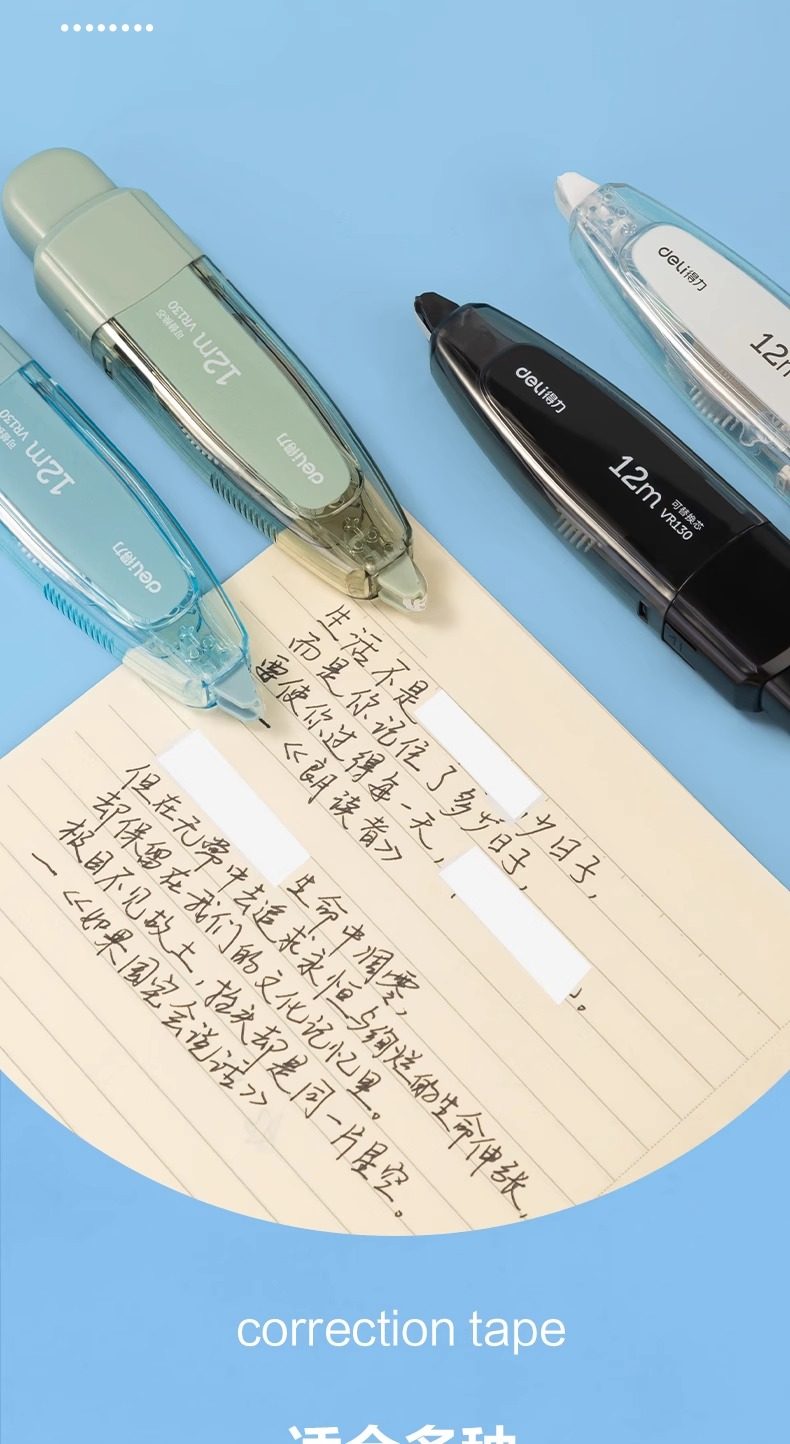 deli得力
12m
deli得力
12m
可替换芯
VR130
12m VR130
可替换芯
deli得力
12m VR130
可替换芯
deli得力
生活不是
少日子,
而是你记住了多少日子,
要使你过得每一天,
。
《朗读者》
生命中凋零,
但在无常中去追求永恒与绚烂的生命伸张,
却保留在我们的文化记忆里。
极目不见故土,抬头却是同一片星空。
一《如果国宝会说话》
correction tape
适合多种